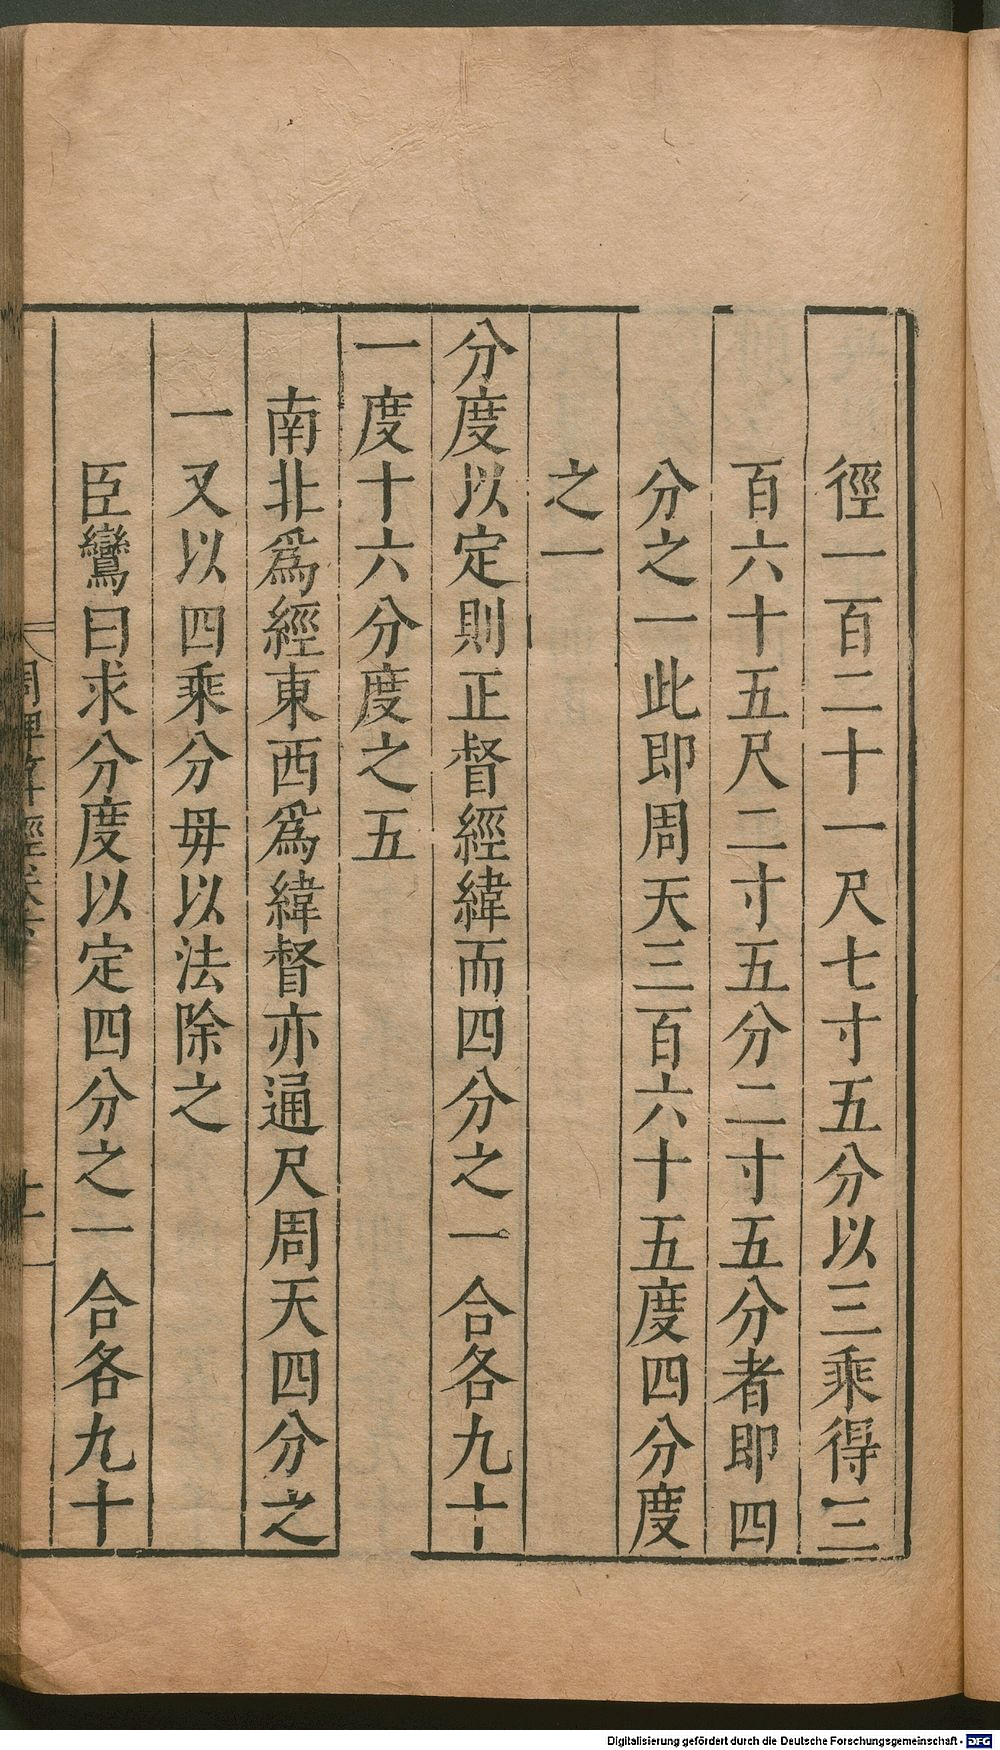 徑一百二十一尺七寸五分以三乘得三
百六十五尺二寸五分二寸五分者即四
分之一此即周天三百六十五度四分度
之一
分度以定則正督經緯而四分之一合各九十
一度十六分度之五
南北爲經東西爲緯督亦通尺周天四分之
一又以四乘分毋以法除之
臣鸞曰求分度以定四分之一合各九十
Digitalisierung gefördert durch die Deutsche Forschungsgemeinschaft - DFG